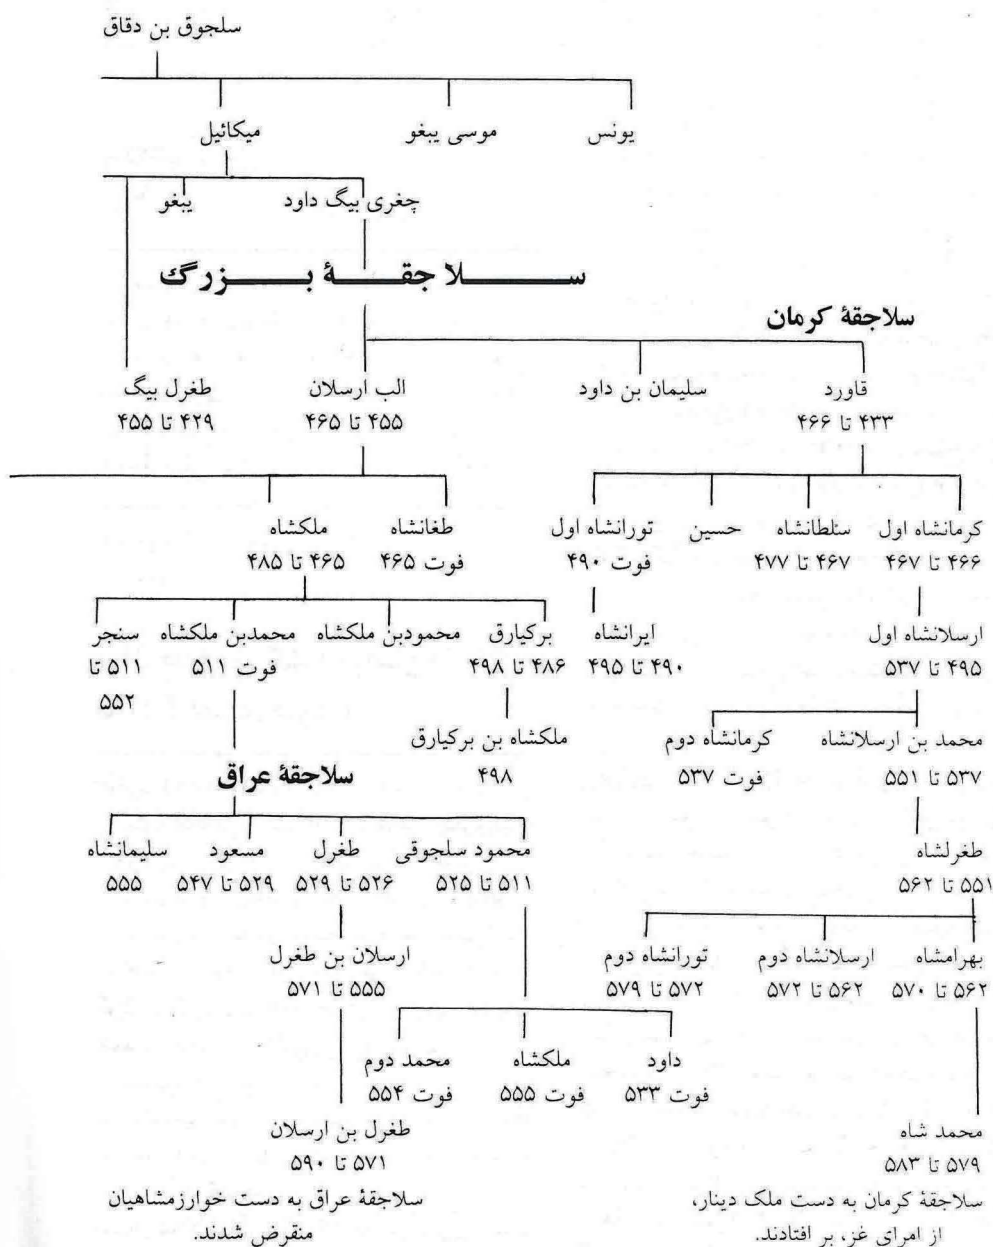 سلجوق بن دقاق
یونس
موسی یبغو
میکائیل
چغری بیگ داود
یبغو
سلاجقهٔ بزرگ
سلاجقهٔ کرمان
قاورد
۴۳۳ تا ۴۶۶
سلیمان بن داود
الب ارسلان
۴۵۵ تا ۴۶۵
طغرل بیگ
۴۲۹ تا ۴۵۵
کرمانشاه اول
۴۶۶ تا ۴۶۷
سلطانشاه
۴۶۷ تا ۴۷۷
حسین
تورانشاه اول
فوت ۴۹۰
طغانشاه
فوت ۴۶۵
ملکشاه
۴۶۵ تا ۴۸۵
ارسلانشاه اول
۴۹۵ تا ۵۳۷
ایرانشاه
۴۹۰ تا ۴۹۵
برکیارق
۴۸۶ تا ۴۹۸
محمودبن ملکشاه
محمدبن ملکشاه
فوت ۵۱۱
سنجر
۵۱۱ تا
۵۵۲
محمد بن ارسلانشاه
۵۳۷ تا ۵۵۱
کرمانشاه دوم
فوت ۵۳۷
ملکشاه بن برکیارق
۴۹۸
سلاجقهٔ عراق
طغرلشاه
۵۵۱ تا ۵۶۲
محمود سلجوقی
۵۱۱ تا ۵۲۵
طغرل
۵۲۶ تا ۵۲۹
مسعود
۵۲۹ تا ۵۴۷
سلیمانشاه
۵۵۵
بهرامشاه
۵۶۲ تا ۵۷۰
ارسلانشاه دوم
۵۶۲ تا ۵۷۲
تورانشاه دوم
۵۷۲ تا ۵۷۹
ارسلان بن طغرل
۵۵۵ تا ۵۷۱
داود
فوت ۵۳۳
ملکشاه
فوت ۵۵۵
محمد دوم
فوت ۵۵۴
محمد شاه
۵۷۹ تا ۵۸۳
سلاجقهٔ کرمان به دست ملک دینار،
از امرای غز، بر افتادند.
طغرل بن ارسلان
۵۷۱ تا ۵۹۰
سلاجقهٔ عراق به دست خوارزمشاهیان
منقرض شدند.